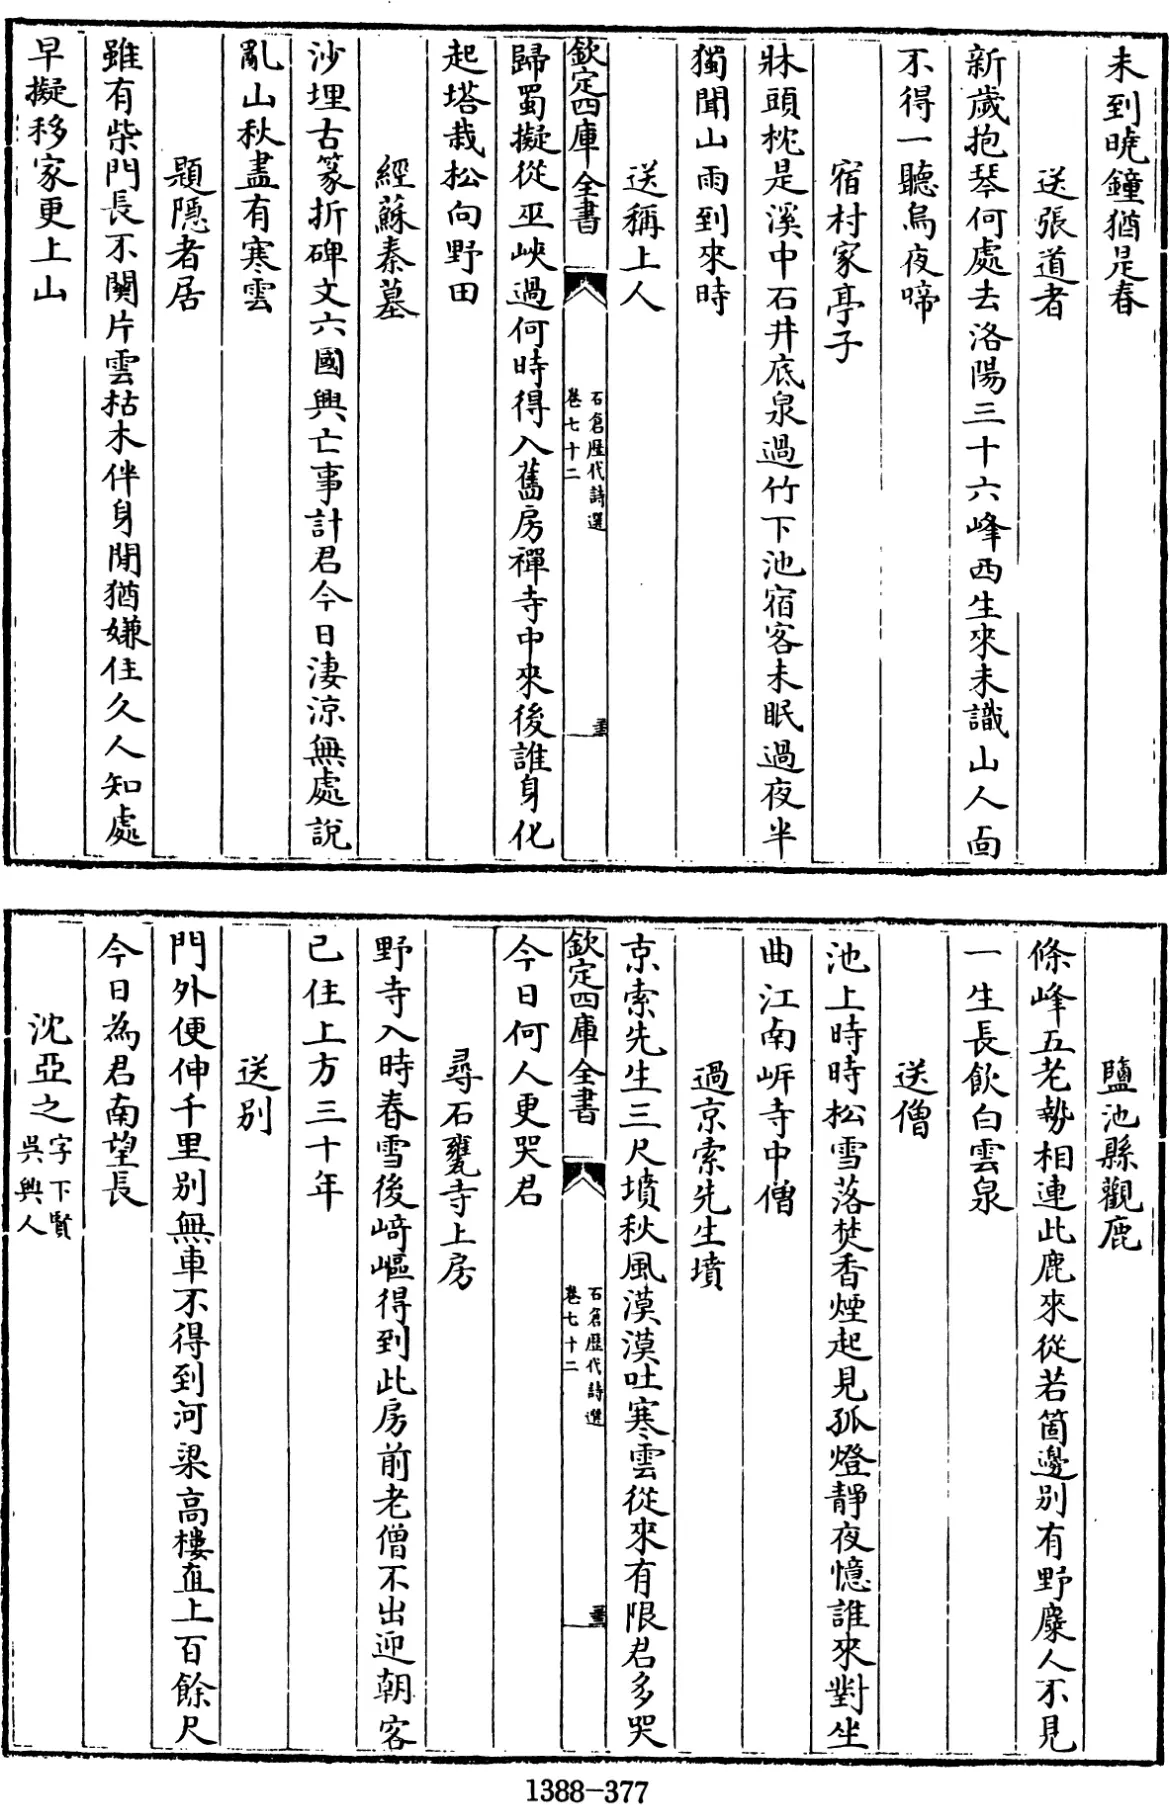 未到曉鐘猶是春
送張道者
新歲抱琴何處去洛陽三十六峰西生來未識山人面
不得一聽烏夜啼
宿村家亭子
牀頭枕是溪中石井底泉過竹下池宿客未眠過夜半
獨聞山雨到來時
送稱上人
欽定四庫全書
石倉歷代詩選
卷七十二
歸蜀擬從巫峽過何時得入舊房禪寺中來後誰身化
起塔栽松向野田
經蘇秦墓
沙埋古篆折碑文六國興亡事計君今日淒涼無處說
亂山秋盡有寒雲
題隱者居
雖有柴門長不關片雲枯木伴身閒猶嫌住久人知處
早擬移家更上山
鹽池縣觀鹿
條峰五老勢相連此鹿來從若箇邊別有野麋人不見
一生長飲白雲泉
送僧
池上時時松雪落焚香煙起見孤燈靜夜憶誰來對坐
曲江南岍寺中僧
過京索先生墳
京索先生三尺墳秋風漠漠吐寒雲從來有限君多哭
欽定四庫全書
石倉歷代詩選
卷七十二
今日何人更哭君
尋石甕寺上房
野寺入時春雪後崎嶇得到此房前老僧不出迎朝客
已住上方三十年
送別
門外便伸千里別無車不得到河梁高樓直上百餘尺
今日為君南望長
沈亞之字下賢
吳興人
1388-377